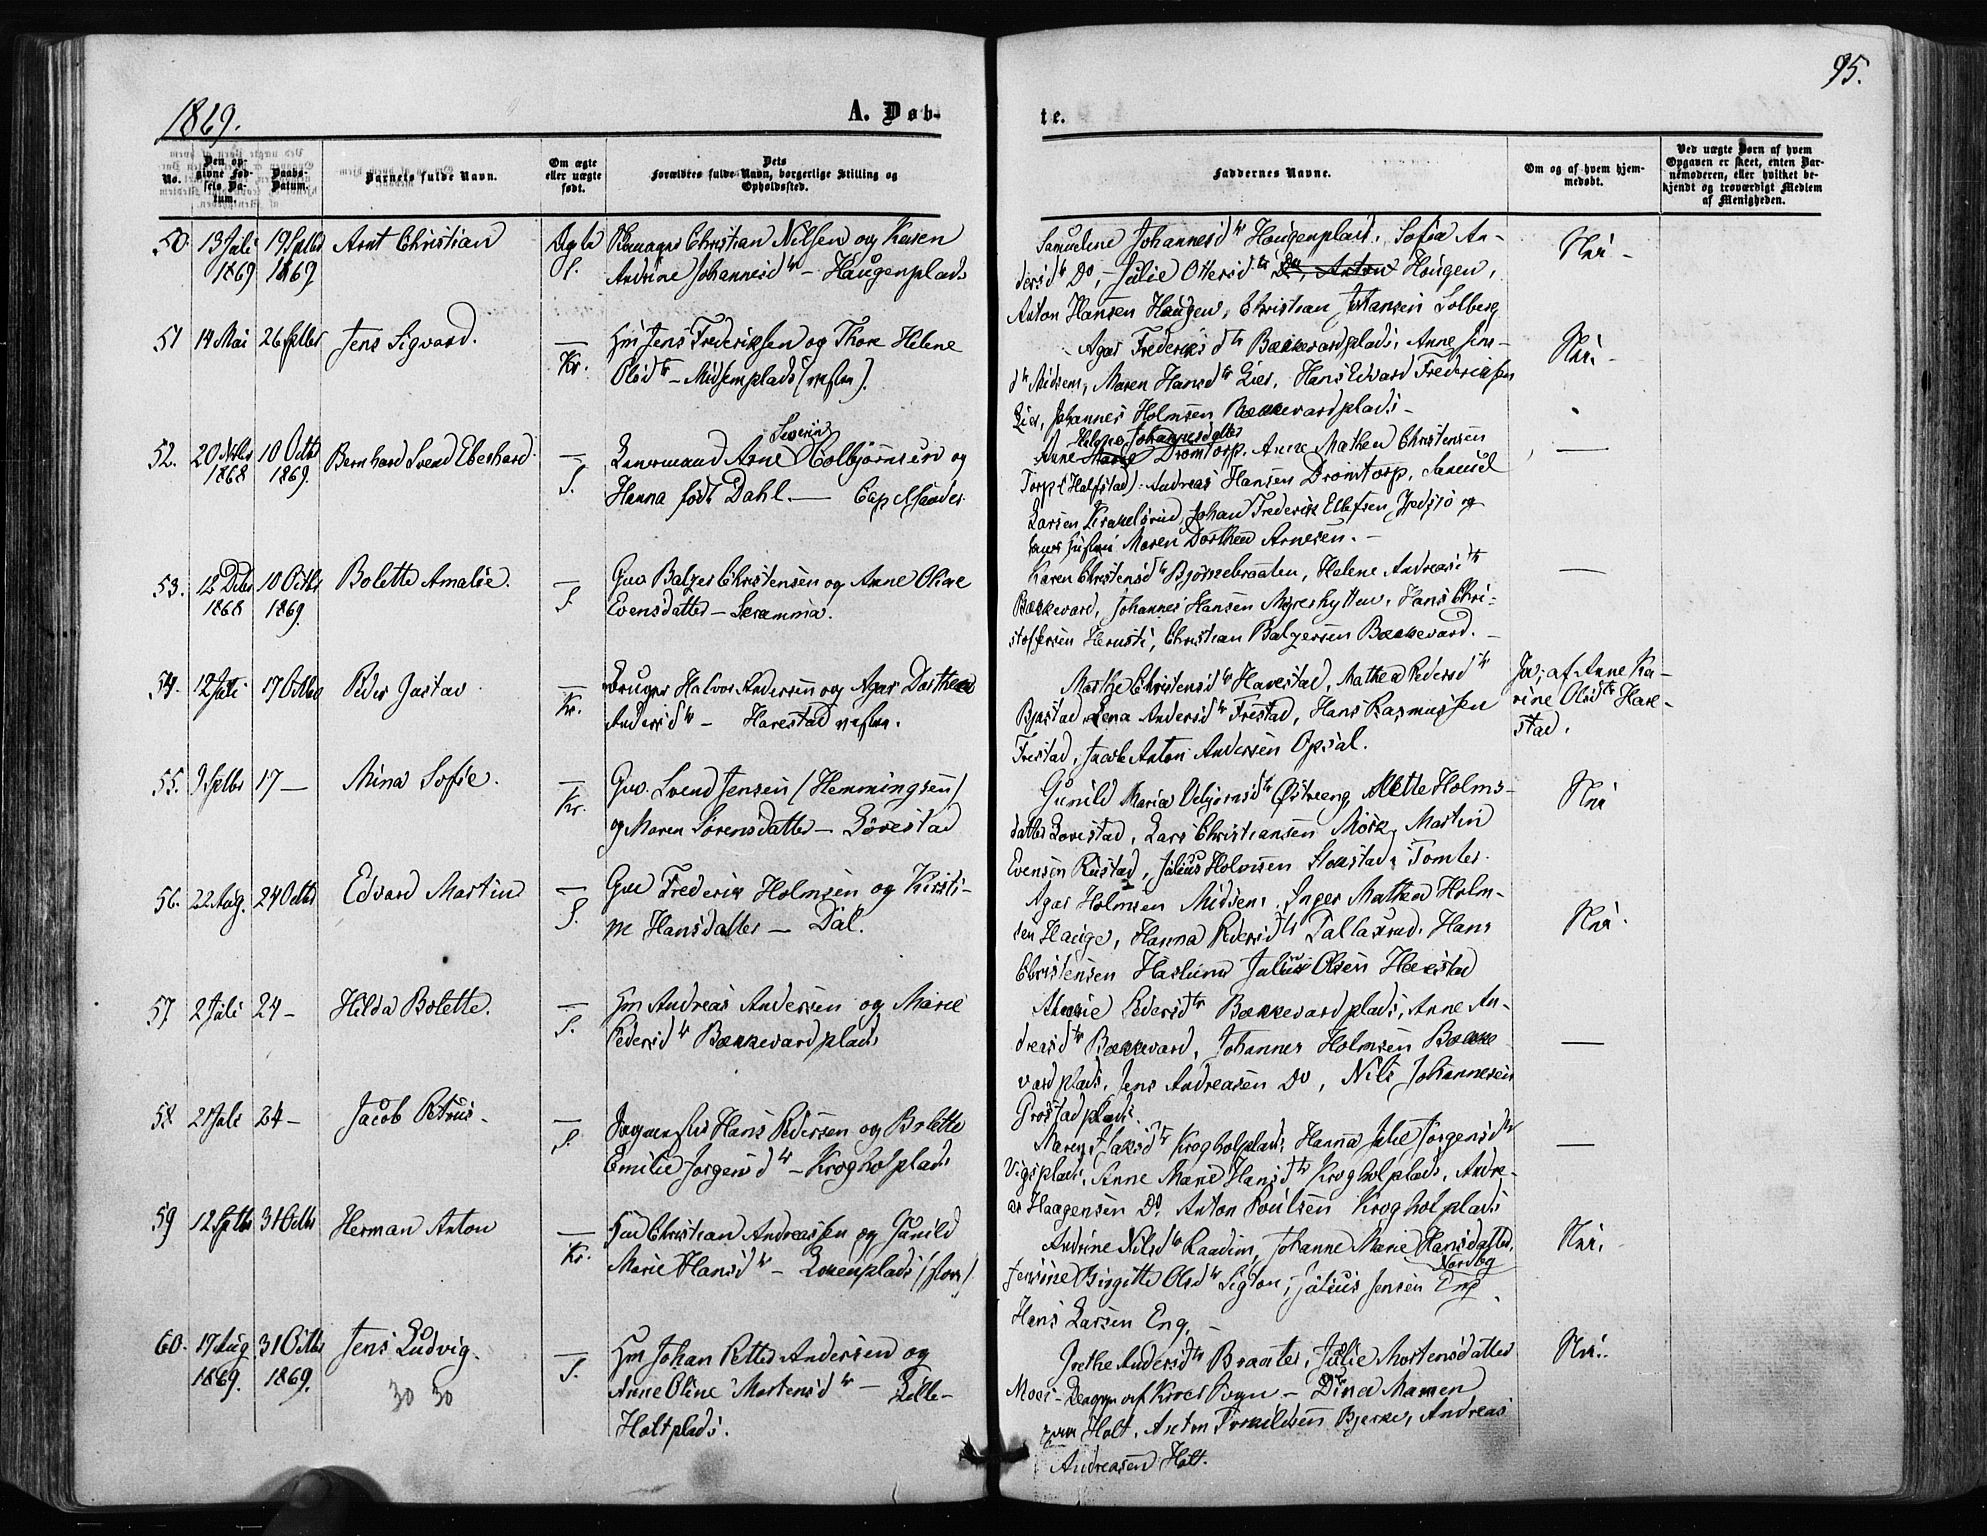 95.
1869.
A. Døb-
te.
No.
Den op-
givne Fød-
sels Da-
tum.
Daabs-
Datum.
Barnets fulde Navn.
Om ægte
eller uægte
født.
Dets
Forældres fulde Navn, borgerlige Stilling og
Opholdssted.
Faddernes Navne.
Om og af hvem hjem-
medøbt.
Ved uægte Børn af hvem
Opgaven er skeet, enten Bar-
nemoderen, eller hvilket be-
kjendt og troværdigt Medlem
af Menigheden.
50. 13 Juli 19 Septbr Arnt Christian Ægte Christian Nilsen og Karen
1869 1869 S. Andrine Johannesdtr – Haugenplads
Samueline Johannesdtr Haugenplads, Sofia An-
dersdtr Do, Julie Ottersdtr Do, Anton Haugen,
Anton Hansen Haugen, Christian Johansen Solberg
Nei –
51 14 Mai 26 Septbr Jens Sigvard. — Hm Jens Frederiksen og Thore Helene
Kr. Olsdtr – Midsemplads
– Agas Frederiksdtr Bækkevardplads, Anne Jens-
dtr Midsem, Maren Hansdtr Lier, Hans Edvard Frederiksen
Lier, Johannes Holmsen Bækkevardplads –
Nei. –
52. 20 10 Octbr Bernhard Svend Eberhard. — Arne Severin Colbjørnsen og
1868 1869. S. Hanna født Dahl. —
Anne Helene Johannesdatter Drømtorp. Anne Mathea Christensen
Torp (Halfstad). Andreas Hansen Drømtorp, Samuel
Larsen Johan Frederik Ellefsen og
Maren Dorthea Arnesen. –
—
53. 12 Debr 10 Octbr Bolette Amalie. — Gaa Balzer Christensen og Anne Oline
1868 1869. S. Evensdatter – Scramma.
Karen Christensdtr Bjørnebraaten, Helene Andreasdtr
Bækkevard, Johannes Hansen Myreshytten, Hans Chri-
stoffersen Christian Balzersen Bækkevard. –
—
54. 12 Juli 17 Octbr Peder Gustav. — Bruger Halvor Andersen og Agas Dorthea
Kr. Andersdtr – Harestad
Marthe Christensdtr Harestad, Mathea Pedersdtr
Bjastad, Lena Andersdtr Frestad, Hans Rasmussen
Frestad, Jacob Anton Andersen Opsal.
Ja, af Anne Ka-
rine Olsdtr Hare-
stad.
55. 9 Septbr 17 — Mina Sofie. — Gaa. Svend Jensen (Hemmingsen)
Kr. og Maren Sørensdatter –
Gunild Maria Østreeng, Mette Holms-
datter Lars Christiansen Mørk, Martin
Evensen Rustad, Julius Holmsen Stokstad, Tomter.
Nei
56. 22 Aug. 24 Octbr Edvard Martin — Gaa Frederik Holmsen og Kirsti-
S. ne Hansdatter – Dal.
Agas Holmsen Midsem, Inger Mathea Holm-
sen Hauge, Hanna Pedersdtr Hans
Christensen Haslum Julius Olsen Harestad
Nei.
57. 2 Juli 24 – Hilda Bolette. — Hm Andreas Andersen og Marie
S. Pedersdtr Bækkevardplads
Pedersdtr Bækkevardplads, Anne An-
dreasdtr Bækkevard, Johannes Holmsen Bække-
vardplads, Jens Andreasen Do, Nils Johannesen
Grøstadplads.
—
58 21 Juli 24 – Jacob Petrus. — Hans Pedersen og Bolette
S. Emilie Jørgensdtr – Krogholplads
Maren Isaksdtr Krogholplads, Hanna Julie Jørgensdtr
Vigsplads, Anne Marie Hansdtr Krogholplads, Andre-
as Haagensen Do. Anton Poulsen Krogholplads
—
59 12 Septbr 31 Octbr Herman Anton — Christian Andreassen og Gunild
Kr. Marie Hansdtr –
Andrine Nilsdtr Raadim, Johanne Marie Hansdatter
Nordby
Jensine Birgitte Olsdtr Sigton, Julius Jensen Eng.
Hans Larsen Eng. –
Nei.
60. 17 Aug 31 Octbr Jens Ludvig. — Hm Johan Petter Andersen og
1869. 1869. S. Anne Oline Mortensdtr – Lille-
30 30
Holtplads.
Grethe Andersdtr Braaten, Julie Mortensdatter
Moss – af Sogn – Dina Mamen
Holt, Anton Torkildsen Bjerke, Andreas
Andreasen Holt.
Nei.